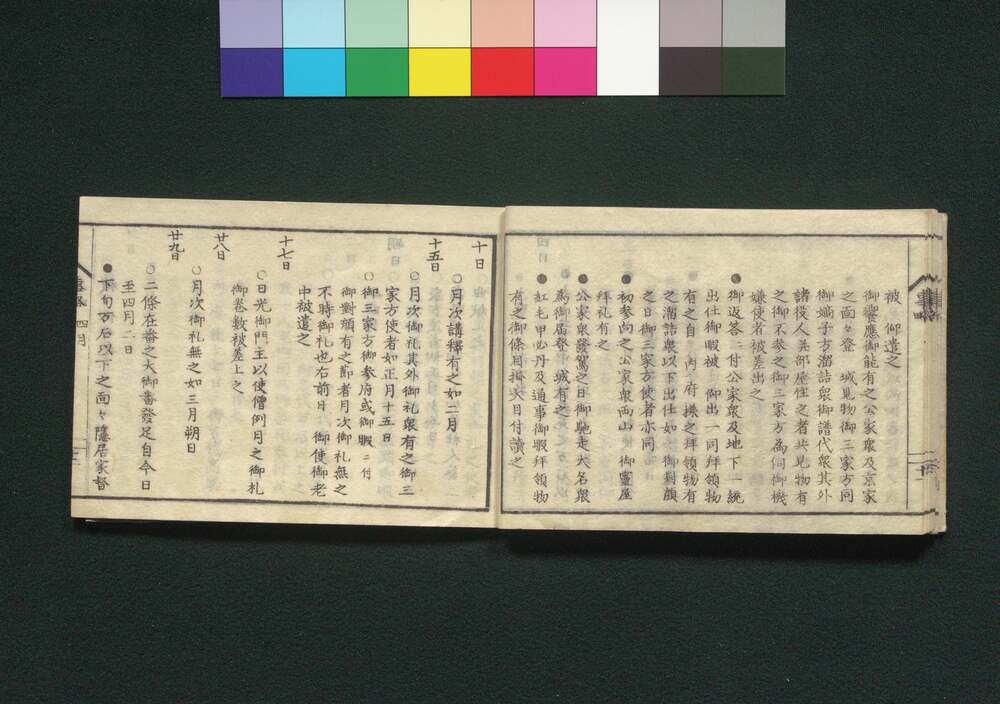 被　仰遣之
御饗應御能有之公家衆及京家
之面々登　城見物御三家方同
御嫡子方溜詰衆御譜代衆其外
諸役人無部屋住之者共見物有
之御不参之御三家方為伺御機
嫌使者被差出之
●御返答ニ付公家衆及地下一統
出仕御暇被　仰出一同拜領物
有之自　内府様之拜領物有
之溜詰衆以下出仕如　御對顔
之日御三家方使者亦同
●初参向之公家衆両山　御靈屋
拜礼有之
●公家衆發駕之日御馳走大名衆
為御届登　城有之
●紅毛甲必丹及通事御暇拜領物
有之御條目掛大目付讀之
十日
○月次講釋有之如二月
十五日
○月次御礼其外御礼衆有之御三
家方使者如正月十五日
○御三家方御参府或御暇ニ付
御對顔有之節者月次御礼無之
不時御礼也右前日　御使御老
中被遣之
十七日
○日光御門主以使僧例月之御札
御卷數被差上之
廿八日
○月次御礼無之如三月朔日
廿九日
○二條在番之大御番發足自今日
至四月二日
●下旬万石以下之面々隱居家督
四月